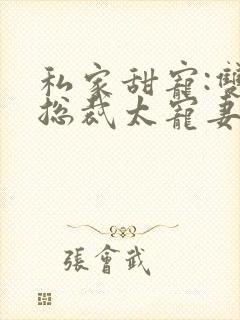 私家甜寵:雙
總裁太寵妻
張會武